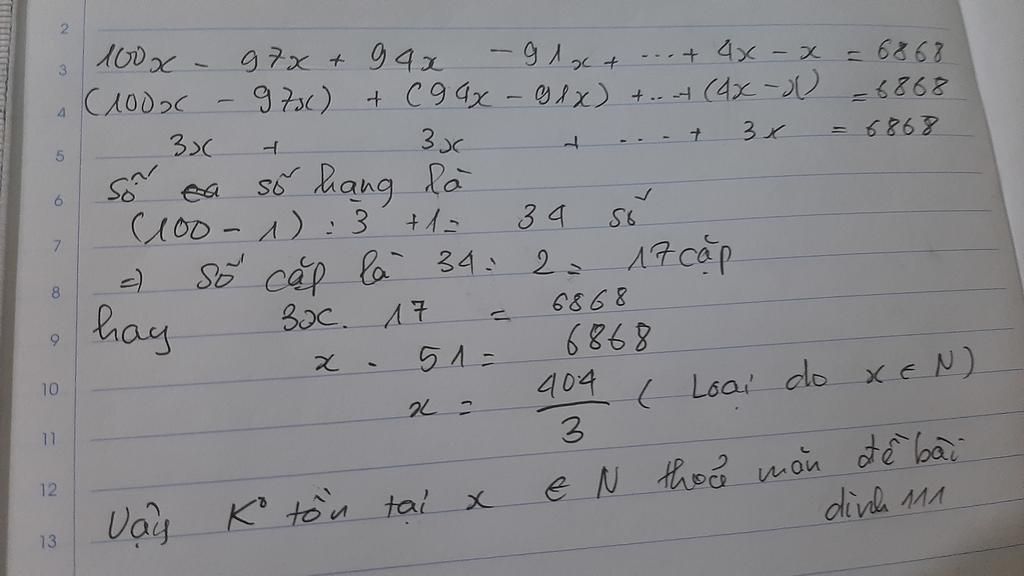 2
100x - 97x + 94x - 91x + ... + 4x - x = 6868
3
(100x - 97x) + (94x - 91x) + ... + (4x - x) = 6868
4
3x + 3x + .... + 3x = 6868
5
Số số hạng là
6
(100 - 1) : 3 + 1 = 34 số
7
=) Số cặp là 34 : 2 = 17 cặp
8
hay 3x. 17 = 6868
9
x . 51 = 6868
10
x = 404/3 ( Loại do x ∈ N)
11
12
Vậy K° tồn tại x ∈ N thoả mãn đề bài
13
dinh 111